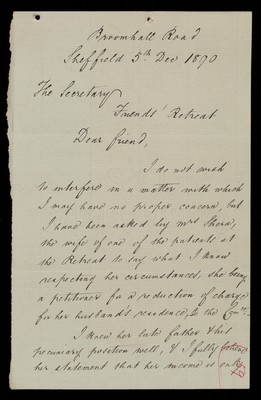 Broomhall Road
Sheffield 5th Dec 1890
The Secretary
Friends' Retreat
Dear friend,
I do not wish
to interfere in a matter with which
I may have no proper concern, but
I have been asked by Mrs
the wife of one of the patients at
the Retreat to say what I know
respecting her circumstances, she being
a petitioner for a reduction of charge
for her husband's residence, to the Comee.
I knew her late father & his
pecuniary position well, & I fully believe
her statement that her income is only